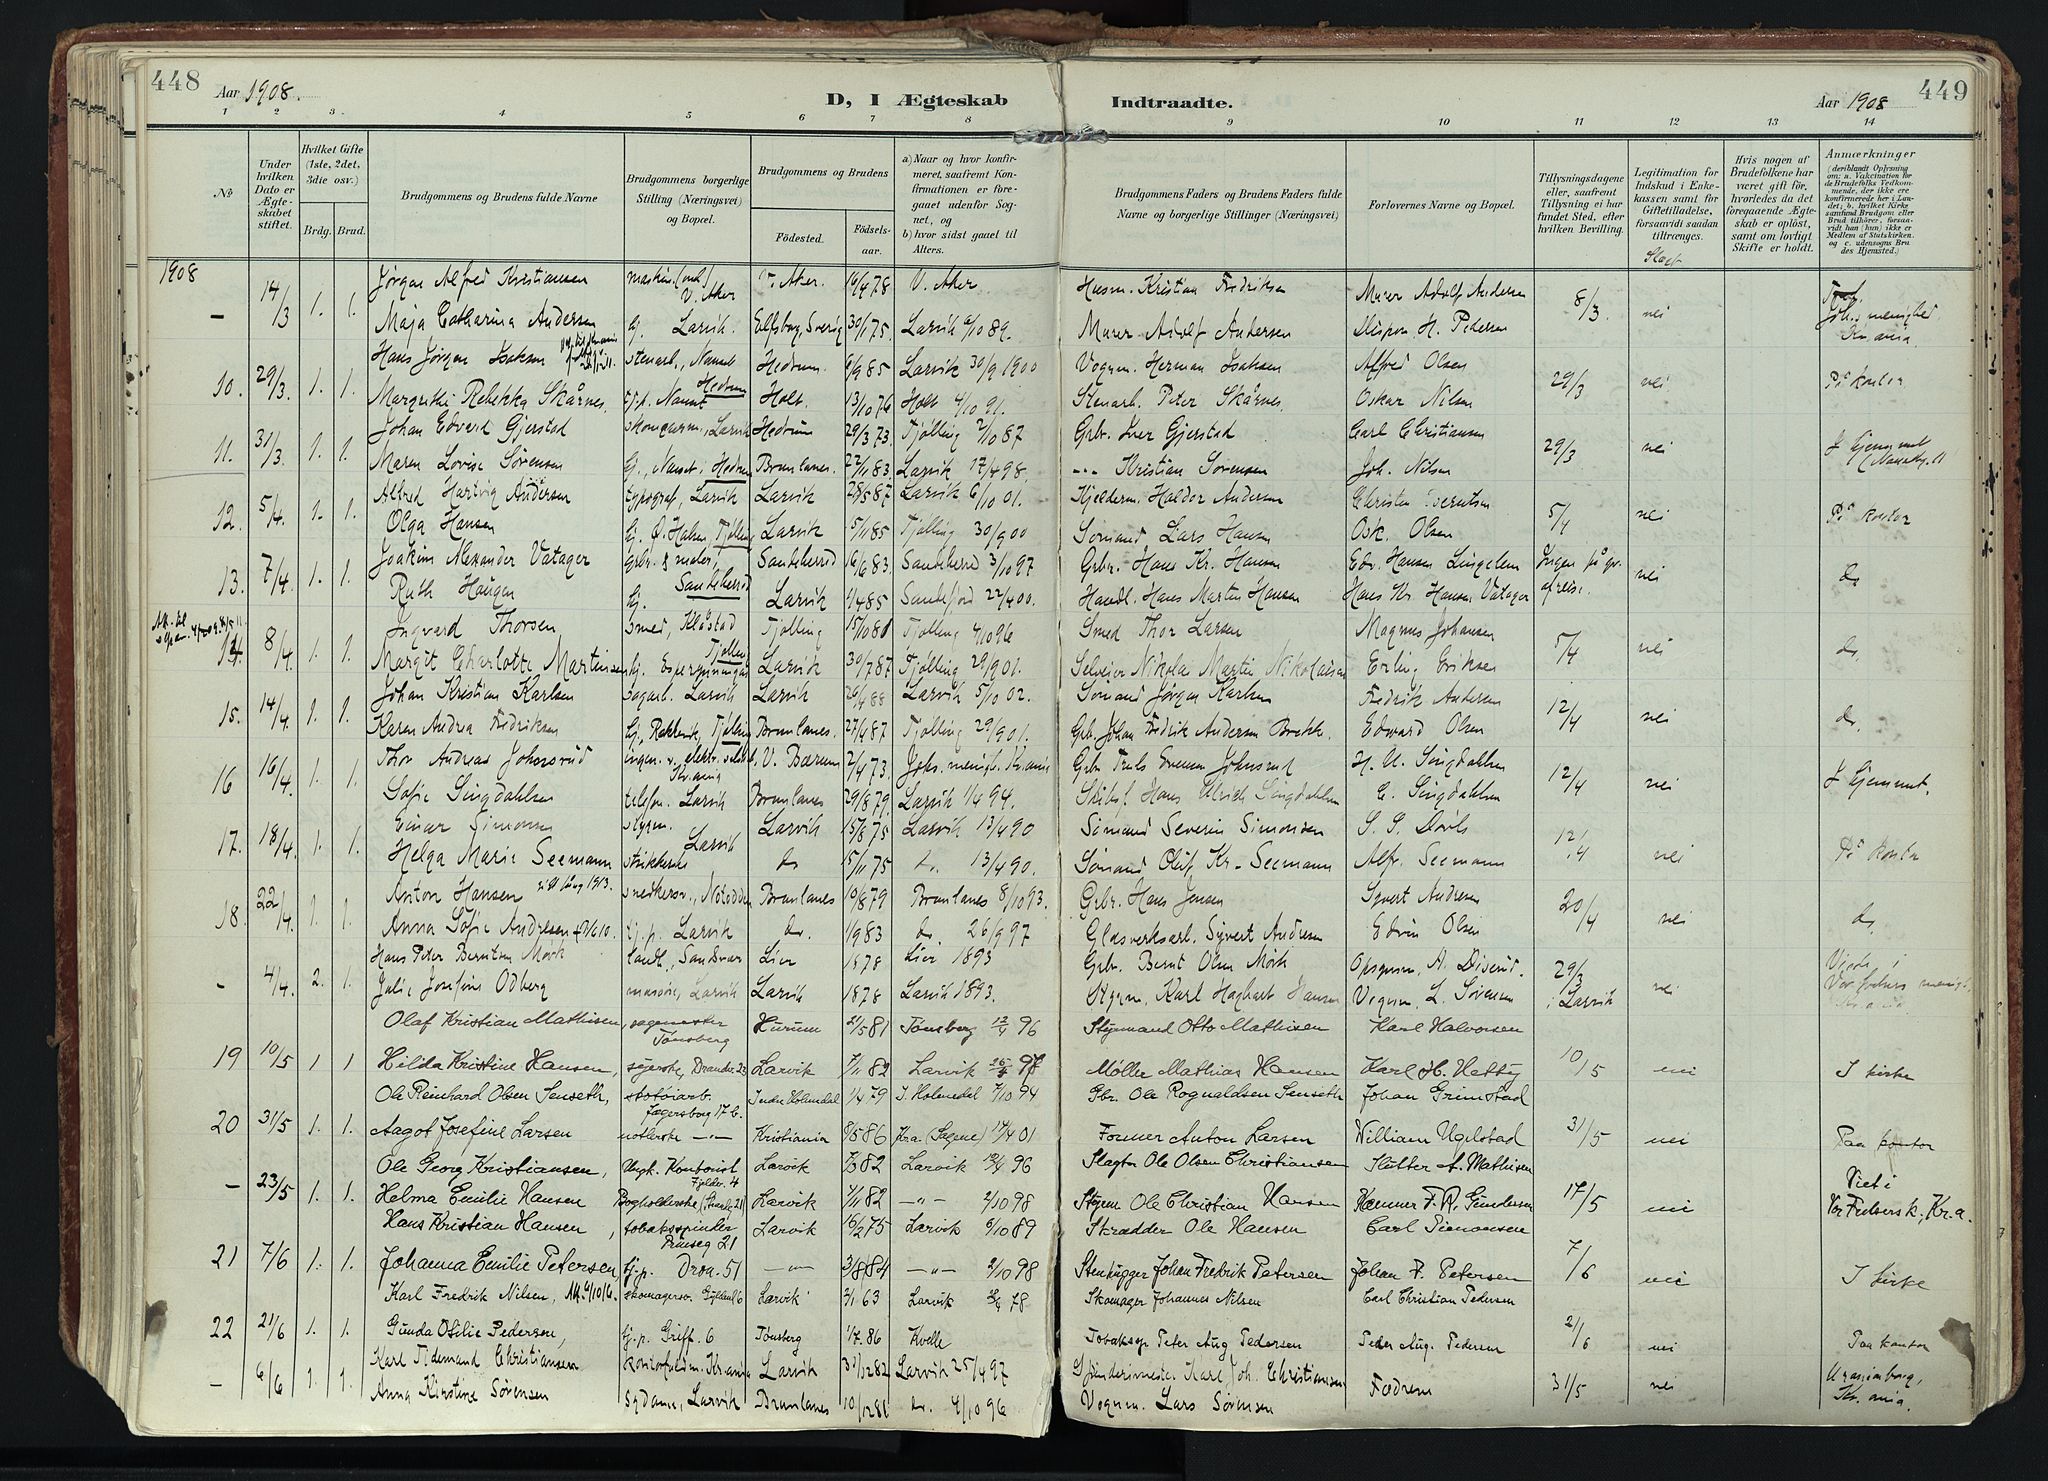 448
Aar 1908.
D, I Ægteskab
Indtraadte.
Aar 1908
449
1 2 3. 4 5 6 7 8 9 10 11 12 13 14
No
Under hvilken Dato er Ægteskabet stiftet.
Hvilket Gifte (1ste, 2det, 3die osv.)
Brdg. Brud.
Brudgommens og Brudens fulde Navne
Brudgommens borgerlige Stilling (Næringsvei) og Bopæl.
Brudgommens og Brudens
Fødested.
Fødselsaar.
a) Naar og hvor konfirmeret, saafremt Konfirmationen er foregaaet udenfor Sognet, og
b) hvor sidst gaaet til Alters.
Brudgommens Faders og Brudens Faders fulde Navne og borgerlige Stillinger (Næringsvei)
Forlovernes Navne og Bopæl.
Tillysningsdagene eller, saafremt Tillysning ei har fundet Sted, efter hvilken Bevilling.
Legitimation for Indskud i Enkekassen samt for Giftetilladelse, forsaavidt saadan tiltrænges.
Hvis nogen af Brudefolkene har været gift før, hvorledes da det foregaaende Ægteskab er opløst, samt om lovligt Skifte er holdt.
Anmærkninger
(deriblandt Oplysning om: a. Vakcination for de Brudefolks Vedkommende, der ikke ere konfirmerede her i Landet; b. hvilket Kirkesamfund Brudgom eller Brud tilhører, forsaavidt han (hun) ikke er Medlem af Statskirken. og c. udensogns Brudes Hjemsted.)
1908
Jørgen Alfred Kristiansen V. Aker V. Aker. 16/4 78 V. Aker Husm. Kristian Fredriksen Murer Adolf Andersen
- 14/3 1. 1. Maja Catharina Andersen tj. Larvik. Elfsborg, Sverig 30/1 75 Larvik 6/10 89. Murer Adolf Andersen H. Pedersen 8/3. nei Joh. menighed Kr.ania
Hans Jørgen Isaksen stenarb., Nanset Hedrum Hedrum. 9/9 85 Larvik 30/9 1900 Vognm. Herman Isaksen Alfred Olsen
10. 29/3. 1. 1. Margrethe Rebekka Skårnes. tj.p. Nanset Holt. 13/10 76 Holt 4/10 91. Stenarb. Peter Skårnes Oskar Nilsen 29/3 nei På kontor
Johan Edvard Gjerstad Larvik Hedrum 29/3 73. Tjølling 2/10 87 Grbr. Iver Gjerstad Carl Christiansen
11. 31/3. 1. 1. Maren Lovise Sørensen tj., Nanset i Hedrum Brunlanes. 22/11 83 Larvik 17/4 98. --- Kristian Sørensen Joh. Nilsen 29/3 nei I hjemmet
Alfred Hartvig Andersen typograf, Larvik Larvik 28/5 87 Larvik 6/10 01. Kjelderm. Haldor Andersen
12. 5/4. 1. 1. Olga Hansen tj. Ø. Halsen, Tjølling Larvik 5/11 85 Tjølling 30/9 00 Sømand Lars Hansen Osk. Olsen 5/4 nei På kontor
Joakim Alexander Vatager Grbr. & maler, Sandeherred Sandeherred 16/6 83. Sandeherred 3/10 97 Grbr. Hans Kr. Hansen Edv. Hansen Lingelem
13. 7/4. 1. 1. Ruth Haugen tj. Larvik 1/4 85 Sandefjord 22/4 00. Handl. Hans Martin Hansen Hans Kr. Hansen Vatager Ingen på gr. afreise. nei do
Ingvard Thorsen Smed, Klåstad Tjølling Tjølling 15/10 81 Tjølling 4/10 96 Smed Thor Larsen Magnus Johansen
14. 8/4. 1. 1. Margit Charlotte Martinsen tj. Larvik 30/7 87 Tjølling 29/9 01. Selveier Nikolai Martin Nikolaisen Erling Eriksen 5/4 nei do.
Johan Kristian Karlsen sagarb. Larvik Larvik 26/4 88 Larvik 5/10 02. Sømand Jørgen Karlsen Fredrik Andersen
15. 14/4. 1. 1. Karen Andrea Fredriksen tj., Rekkevik, Tjølling Brunlanes. 27/4 87 Tjølling 29/9 01. Grb. Johan Fredrik Andersen Brekke. Edvard Olsen 12/4 nei do.
Thor Andreas Johnsrud Kr.ania V. Bærum 2/4 73. Joh. menigh. Kr.ania Grbr Truls Evensen Johnsrud H. U. Singdahlsen
16 16/4. 1. 1. Sofie Singdahlsen telefon. Larvik Brunlanes 29/8 79. Larvik 1/4 94. Skibsf. Hans Ulrich Singdahlsen C. Singdahlsen 12/4 nei I hjemmet.
Einar Simonsen styrm. Larvik Larvik 15/8 75 Larvik 13/4 90 Sømand Severin Simonsen
17. 18/4. 1. 1. Helga Marie Seemann strikkerske do 15/11 75 do. 13/4 90. Sømand Oluf Kr. Seemann Alfr. Seemann 12/4 nei På kontor
Anton Hansen snedkersv., Notodden Brunlanes 10/8 79 Brunlanes 8/10 93. Grbr. Hans Jensen Syvert Andresen
18. 22/4. 1. 1. Anna Sofie Andresen tj.p. Larvik do. 1/9 83 do. 26/9 97 Glasverksarb. Syvert Andresen Edvin Olsen 20/4 nei do.
Hans Peter Berntsen Mørk landh., Sandsvær Lier 1878 Lier 1893 Grbr. Bernt Olsen Mørk Opsynsm. A. Diserud.
- 4/4. 2. 1. Julie Josefine Odberg Larvik Larvik 1878 Larvik 1893. Styrm. Karl Hagbart Hansen Vognm. L. Sørensen 29/3 i Larvik nei Viede i Vor frelsers menigh. Kr.ania
Olaf Kristian Mathisen, sagmester Tønsberg Hurum 21/5 81 Tønsberg 12/4 96 Styrmand Otto Mathisen Karl Halvorsen
19 10/5 1 1 Hilda Kristine Hansen, syerske, Larvik 7/11 82 Larvik 25/4 97 Møller Mathias Hansen Karl H. Hetty 10/5 nei I kirke
Ole Reinhard Olsen Senseth, skotøiarb. Jegersborg 17 b. Indre Holmedal 1/4 79 I. Holmedal 7/10 94 Gbr. Ole Rognaldsen Senseth Johan Grimstad
20 31/5 1. 1. Aagot Josefine Larsen notlerske -"- Kristiania 8/5 86 Kra. (Sagene) 14/4 01 Former Anton Larsen William Ugelstad 31/5 nei Paa kontor
Ole Georg Kristiansen, Ungk. Kontorist Fjeldv. 4 Larvik 7/3 82 Larvik 12/4 96 Slagter Ole Olsen Christiansen Slutter A. Mathisen
- 23/5 1. 1. Helma Emilie Hansen Bogholderske Larvik 7/11 82 -"- 2/10 98 Styrm Ole Christian Hansen Kæmner F. A. Gundersen 17/5 nei Viet i Vor Frelsersk., Kr.a.
Hans Kristian Hansen, tobaksspinder Prinseg 21 Larvik 16/2 75 Larvik 6/10 89 Skrædder Ole Hansen Carl Simonsen
21 7/6 1. 1. Johanna Emilie Petersen tj.p. Dron. 51 -"- 3/8 84 -"- 2/10 98 Stenhugger Johan Fredrik Petersen Johan F. Petersen 7/6 nei I kirke
Karl Fredrik Nilsen, skomagersv. Larvik 2/1 63 Larvik 78 Skomager Johannes Nilsen Carl Christian Pedersen
22 21/6 1. 1. Gunda Otilie Pedersen, tj.p. Griff. 6 Tønsberg 1/7. 86 Kvelle Tobaksp Peter Aug Pedersen Peder Aug. Pedersen 21/6 nei Paa kontor
Karl Tidemand Christiansen Kr.ania Larvik 31/12 82 Larvik 25/4 97 Karl Joh. Christiansen
- 6/6 1. 1. Anna Kirstine Sørensen Sydame, Larvik Brunlanes 10/12 81 do. 4/10 96 Vognm. Lars Sørensen Fædrene 31/5 nei Uranienborg, Kr.ania.